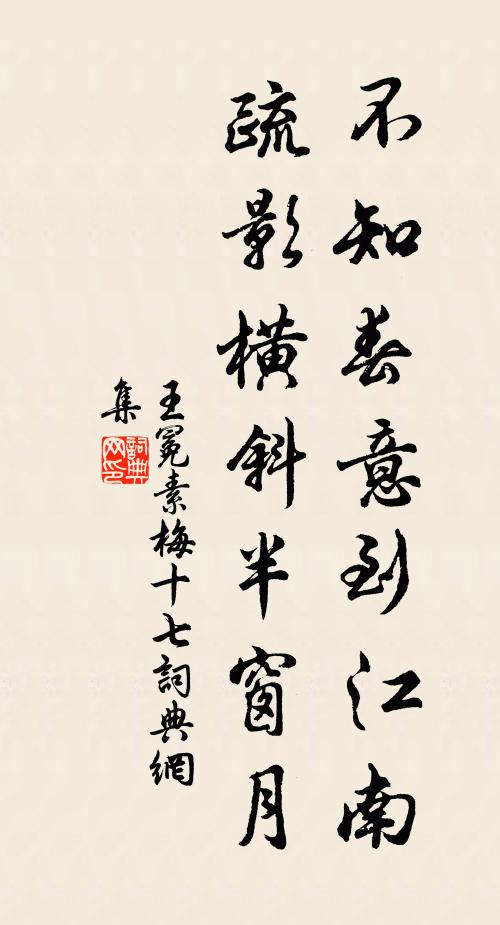 不知春意到江南
疏影橫斜半窗月
王冕素梅十七詞典網
集
詞典
網印